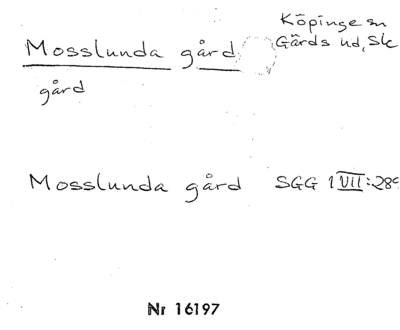 Köpinge sn
Mosslunda gård Gärds hd, Sk
gård
Mosslunda gård SGG 1 VII:289
Nr 16197